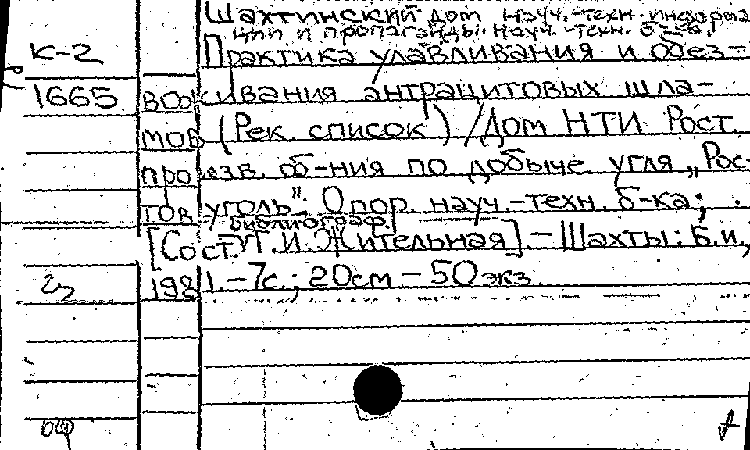 Шахтинский дом науч.-техн. информа
ции и пропаганды. Науч.-техн. б-ка.
К-2
Практика улавливания и обез-
1665
воживания антрацитовых шла-
мов (Рек. список) / Дом НТИ Рост.
произв. об-ния по добыче угля „Рос-
тов уголь". Опор. науч.-техн. б-ка;
библиограф.
[Сост. Т.И. Жительная] - Шахты: Б.и.,
1981. - 7с.; 20см - 50 экз.